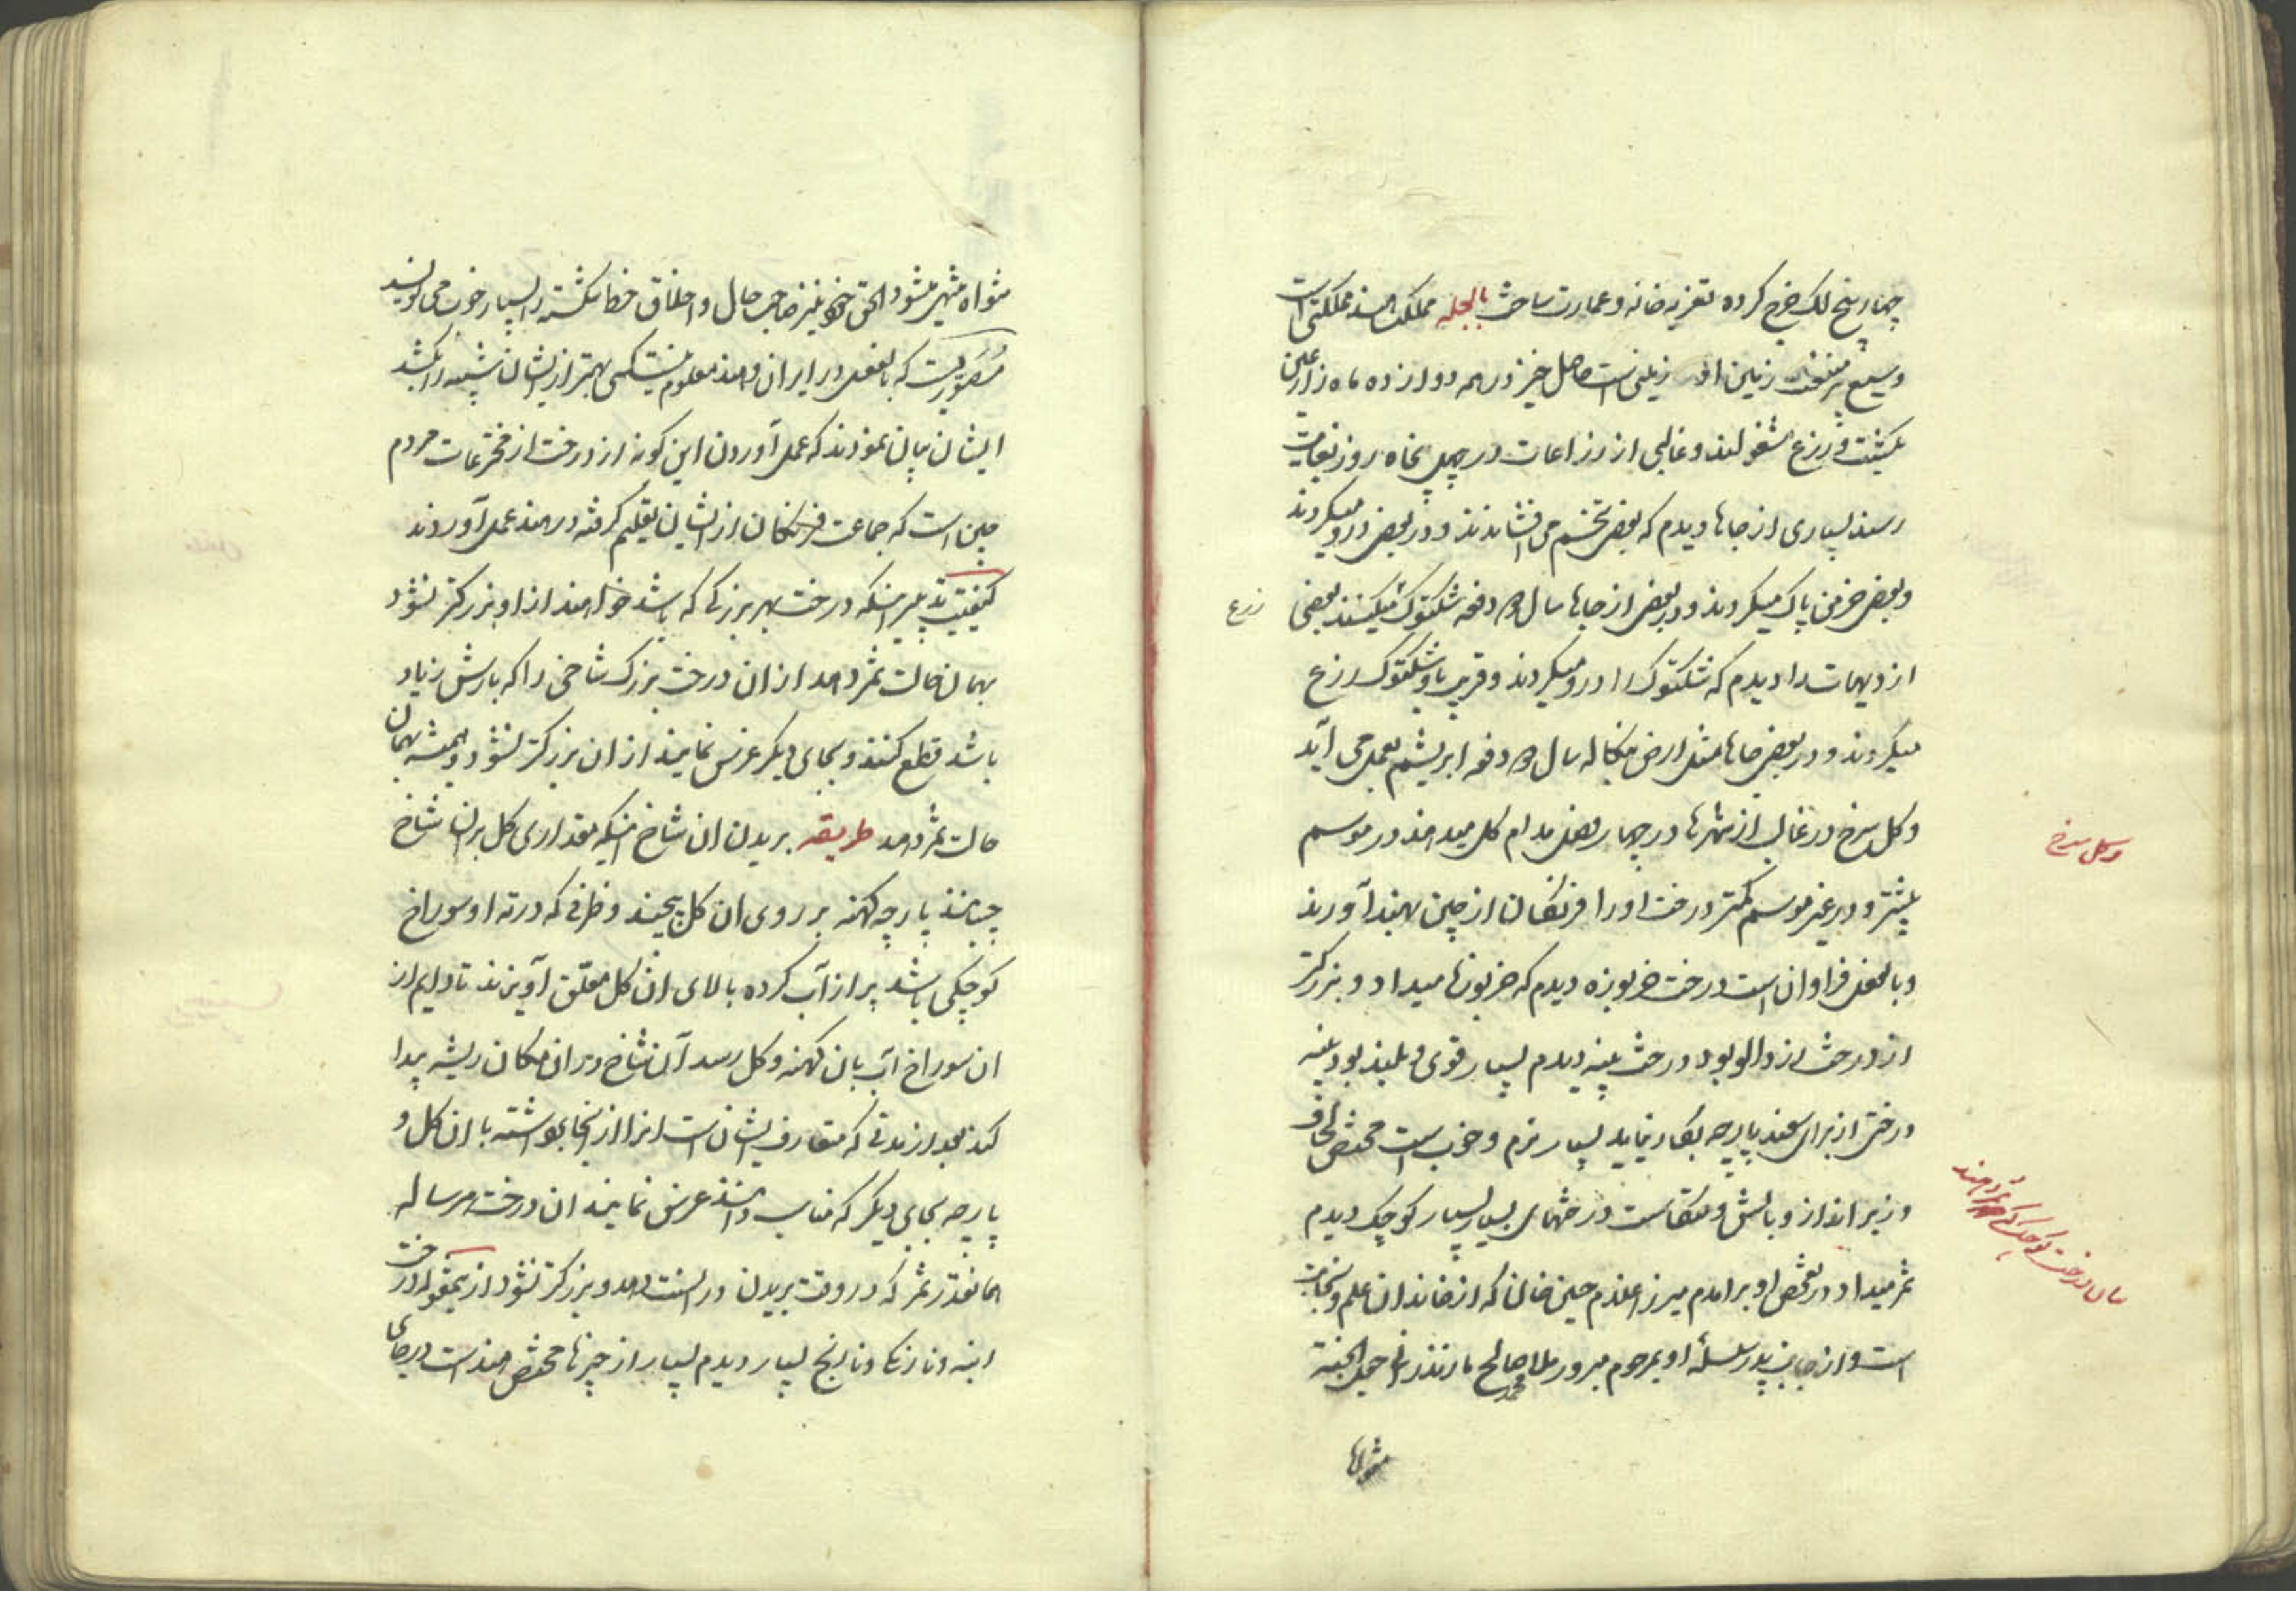 چهار پنج لک خرج کرده تعزیه خانه و عمارت ساخت بالجمله مملکت هند مملکتی است
وسیع پر منفعت زمین او زمینی است حاصل خیز در همه دوازده ماه زارعین
بکشت و زرع مشغولند و غالبی از زراعات در چهل پنجاه روز بغایت
رسند بسیاری از جاها دیدم که بعضی تخم می افشاندند و در بعضی درو میکردند
و بعضی خرمن پاک میکردند و در بعضی از جاها سال دفعه شلتوک میکنند بعضی
زرع
از دیهات را دیدم که شلتوک را درو میکردند و قریب باو شلتوک زرع
میکردند و در بعضی جاها مثل ارض بنگاله سال دفعه ابریشم بعمل می آید
و کل سرخ در غالب از شهرها در چهار فصل مدام کل میدهند در موسم
و کل سرخ
بیشتر و در غیر موسم کمتر درخت او را فرنگان از چین بهند آورند
و بالفعل فراوان است درخت خربوزه دیدم که خربوزها میداد و بزرکتر
از درخت زردالو بود درخت پنبه دیدم بسیار قوی و بلند بود پنبه
درختی از برای پارچه بکار نیاید بسیار نرم و خوب است مختص لحاف
و زیر انداز و بالش و متکا است درختهای بسیار بسیار کوچک دیدم
ثمر میداد در تفحص او برامدم میرزا غلام حسین خان که از خاندان علم و نجابت
است و از جانب پدر سلسله او بمرحوم مبرور ملا محمد صالح مازندرانی
متواه منتهی میشود الحق خود نیز صاحب حال و اخلاق خط شکسته را بسیار خوب می نویسد
مصوریست که بالفعل در ایران و هند معلوم نیست کسی بهتر از ایشان شبیه را بکشد
ایشان بیان نمودند که عمل آوردن این کونه از درخت از مخترعات مردم
چین است که جماعت فرنگان از ایشان تعلیم گرفته در هند عمل آوردند
کیفیت تدبیر اینکه درخت بهر بزرگی که باشد خواهند از او بزرکتر نشود
بهمان حالت ثمر دهد از ان درخت بزرک شاخی را که بارش زیاد
باشد قطع کنند و بجای دیگر غرس نمایند از ان بزرکتر نشود و همیشه بهمان
حالت ثمر دهد طریقه بریدن ان شاخ اینکه مقداری کل بران شاخ
چسبانند پارچه کهنه بر روی ان کل پیچند و ظرفی که در ته او سوراخ
کوچکی باشد پر از آب کرده بالای ان کل معلق آویزند تا دایم از
ان سوراخ آب بان کهنه و کل رسد آن شاخ در ان مکان ریشه پیدا
کند بعد از مدتی که متعارف ایشان است انرا از انجا برداشته با ان کل و
پارچه بجای دیگر که مناسب دانند غرس نمایند ان درخت هر ساله
همانقدر ثمر که در وقت بریدن دهد و بزرکتر نشود از اینمقوله درخت
انبه و نارنگی و نارنج بسیار دیدم بسیار از چیزها مختص هند است در جای